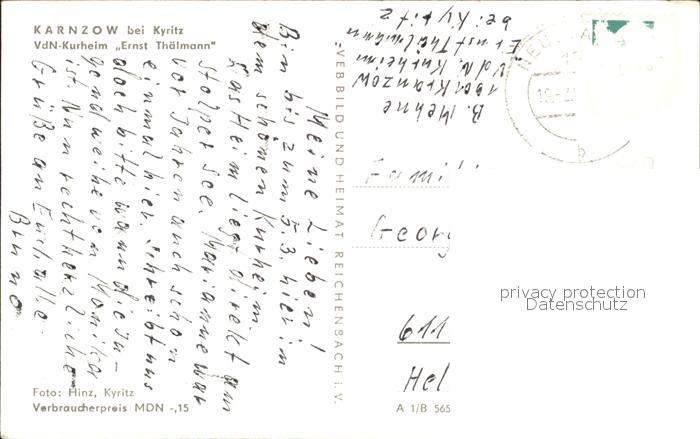 KARNZOW bei Kyritz
VdN-Kurheim „Ernst Thälmann"
Meine Lieben!
Bin bis zum 5.3. hier in
dem schönen Kurheim.
Das Heim liegt direkt am
Stolper See. Marianne war
vor Jahren auch schon
einmal hier. Schreibt uns
doch bitte wann die Ju-
gendweihe von Monika
ist. Nun recht herzliche
Grüße an Euch alle
Bruno
Foto: Hinz, Kyritz
Verbraucherpreis MDN -,15
VEB BILD UND HEIMAT REICHENBACH i. V.
A 1/B 565
B. Mehne
1901 Kranzow
VdN. Kurheim
Ernst Thälmann
bei Kyritz
Fami
Georg
611
Hel
privacy protection
Datenschutz